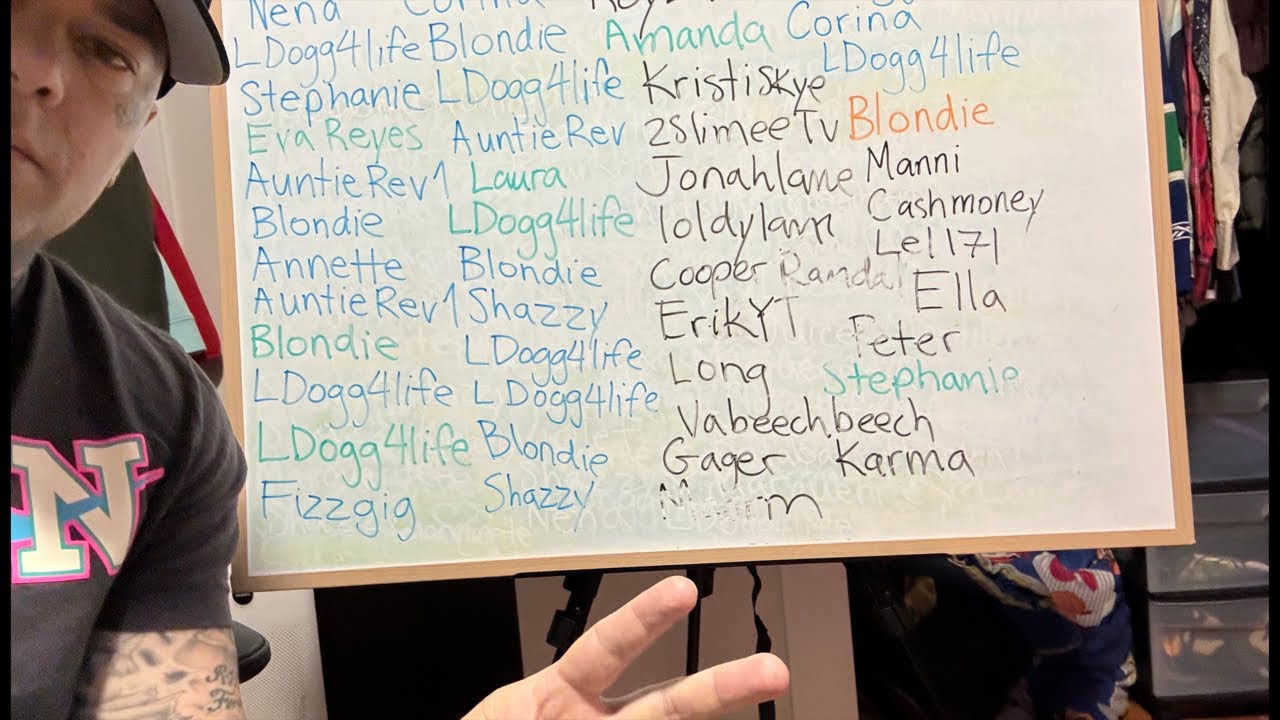 Nena Corina
LDogg4life Blondie Amanda Corina
Stephanie LDogg4life KristiSkye LDogg4life
Eva Reyes AuntieRev 2SlimeeTv Blondie
AuntieRev1 Laura Jonahlane Manni
Blondie LDogg4life loldylann Cashmoney
Annette Blondie Cooper Randal Lel171
AuntieRev1 Shazzy ErikYT Ella
Blondie LDogg4life Long Peter
LDogg4life LDogg4life Stephanie
LDogg4life Blondie Vabeechbeech
Fizzgig Shazzy Gager Karma
Nena
N